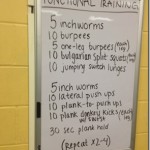 FUNCTIONAL TRAINING
5 inchworms
10 burpees
5 one-leg burpees
10 bulgarian split squats
10 jumping switch lunges
5 inch worms
10 lateral push ups
10 plank-to-push ups
10 plank donkey kicks
30 sec plank hold
(Repeat x2-4)